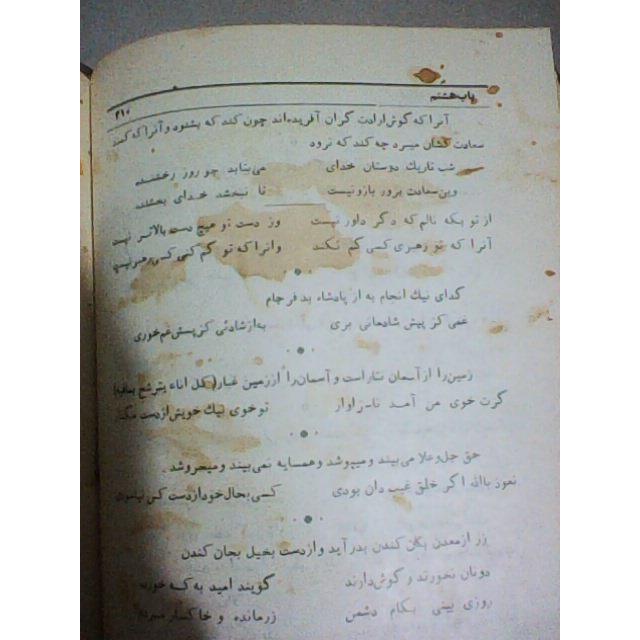 باب هشتم
۲۱۰
آنرا که گوش ارادت گران آفریده‌اند چون کند که بشنود و آنرا که کمند
سعادت کشان میبرد چه کند که نرود
شب تاریك دوستان خدای می‌بتابد چو روز رخشنده
وین سعادت بزور بازو نیست تا نبخشد خدای بخشنده
از تو بکه نالم که دگر داور نیست وز دست تو هیچ دست بالاتر نیست
آنرا که تو رهبری کسی گم نکند وانرا که تو گم کنی کسی رهبر نیست
گدای نیك انجام به از پادشاه بد فرجام
غمی کز پیش شادمانی بری به از شادئی کز پسش غم خوری
زمین را از آسمان نثار است و آسمان را از زمین غبار (کل اناء یترشح بمافیه)
گرت خوی من آمد ناسزاوار تو خوی نیك خویش از دست مگذار
حق جل و علا می‌بیند و میپوشد و همسایه نمی‌بیند و میخروشد
نعوذ باالله اگر خلق غیب دان بودی کسی بحال خود از دست کس نیاسودی
زر از معدن بکان کندن بدر آید و از دست بخیل بجان کندن
دونان نخورند و گوش دارند گویند امید به که خورده
روزی بینی بکام دشمن زر مانده و خاکسار مرده